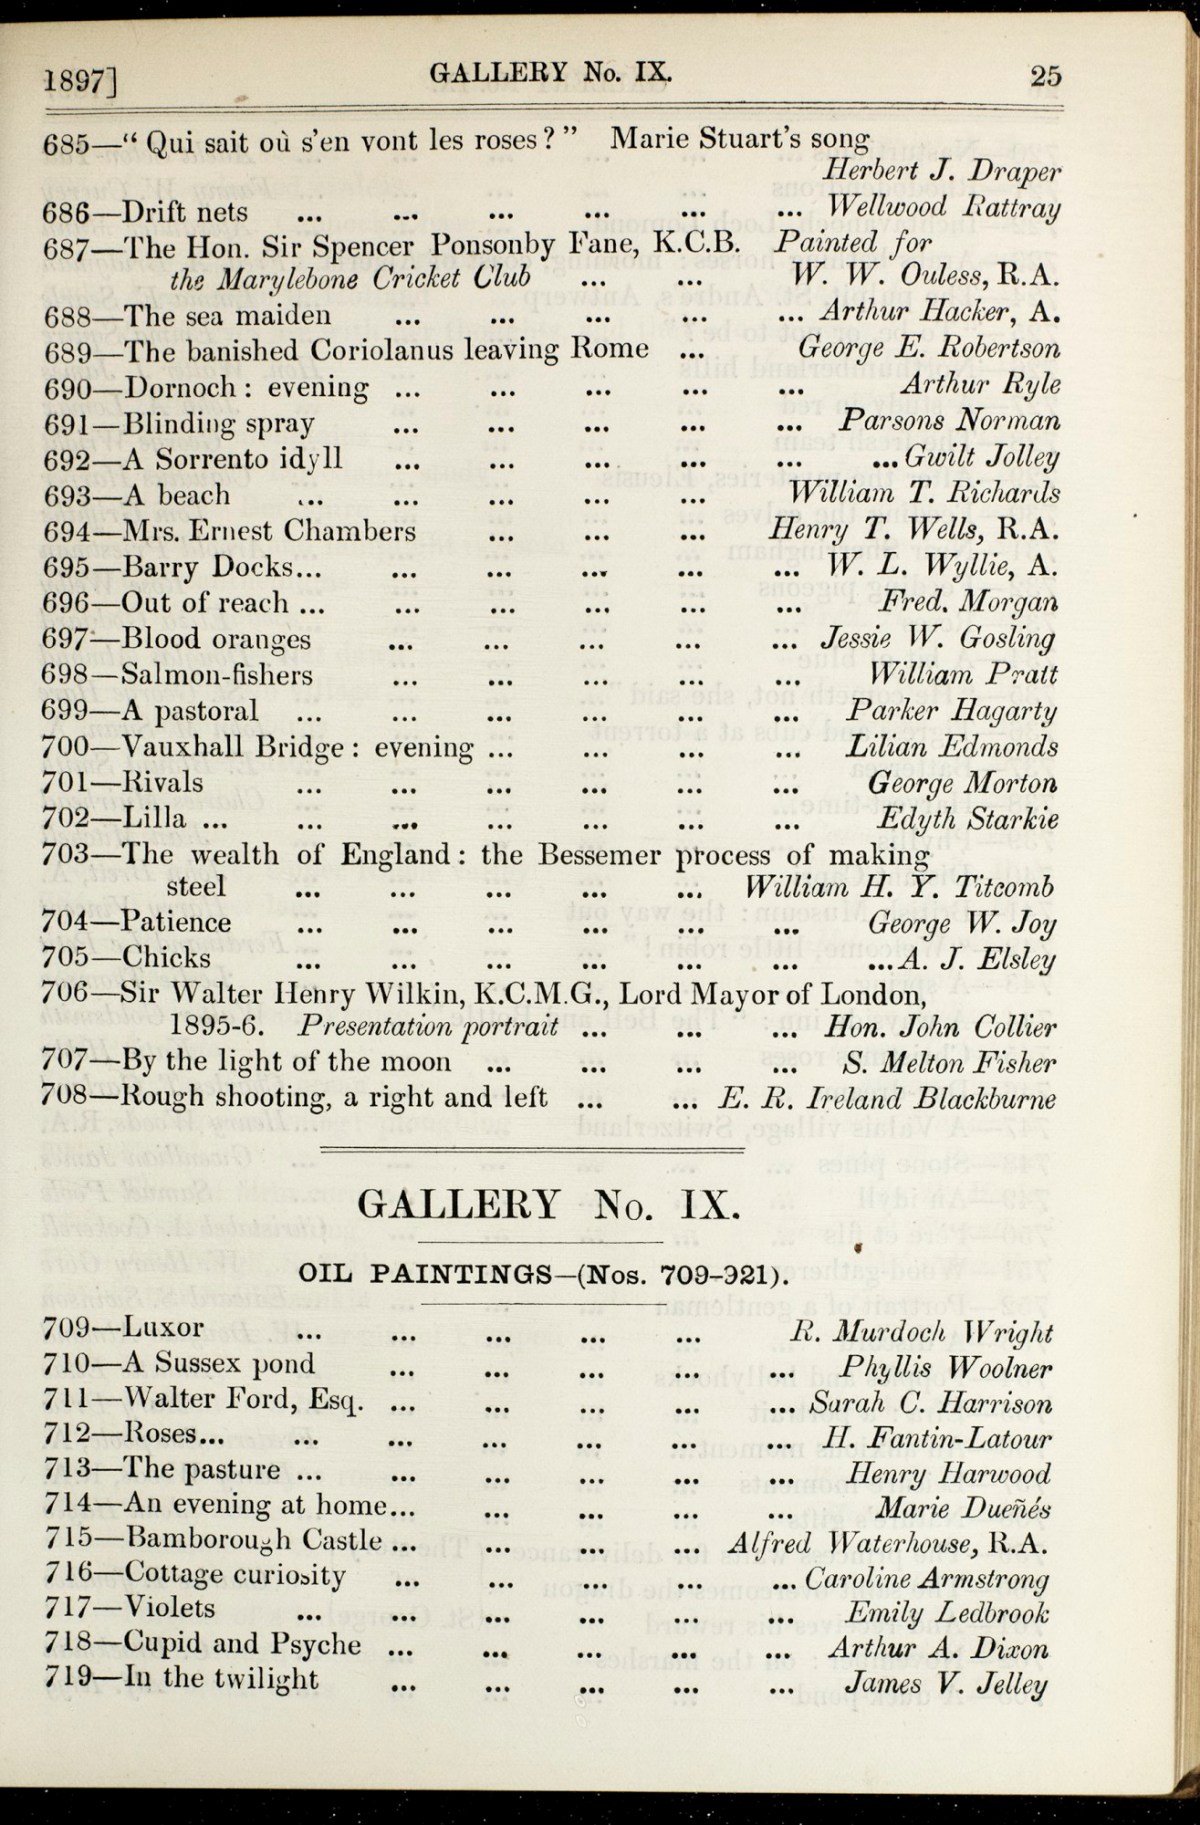 1897] GALLERY No. IX. 25
685—“ Qui sait où s'en vont les roses? ” Marie Stuart's song
Herbert J. Draper
686—Drift nets ... ... ... ... ... ... Wellwood Rattray
687—The Hon. Sir Spencer Ponsonby Fane, K.C.B. Painted for
the Marylebone Cricket Club ... ... W. W. Ouless, R.A.
688—The sea maiden ... ... ... ... ... Arthur Hacker, A.
689—The banished Coriolanus leaving Rome ... George E. Robertson
690—Dornoch : evening ... ... ... ... ... Arthur Ryle
691—Blinding spray ... ... ... ... ... Parsons Norman
692—A Sorrento idyll ... ... ... ... ... ... Gwilt Jolley
693—A beach ... ... ... ... ... William T. Richards
694—Mrs. Ernest Chambers ... ... ... Henry T. Wells, R.A.
695—Barry Docks... ... ... ... ... ... W. L. Wyllie, A.
696—Out of reach ... ... ... ... ... ... Fred. Morgan
697—Blood oranges ... ... ... ... ... Jessie W. Gosling
698—Salmon-fishers ... ... ... ... ... William Pratt
699—A pastoral ... ... ... ... ... ... Parker Hagarty
700—Vauxhall Bridge : evening ... ... ... ... Lilian Edmonds
701—Rivals ... ... ... ... ... ... George Morton
702—Lilla ... ... ... ... ... ... ... Edyth Starkie
703—The wealth of England : the Bessemer process of making
steel ... ... ... ... ... William H. Y. Titcomb
704—Patience ... ... ... ... ... ... George W. Joy
705—Chicks ... ... ... ... ... ... ... A. J. Elsley
706—Sir Walter Henry Wilkin, K.C.M.G., Lord Mayor of London,
1895-6. Presentation portrait ... ... ... Hon. John Collier
707—By the light of the moon ... ... ... ... S. Melton Fisher
708—Rough shooting, a right and left ... ... E. R. Ireland Blackburne
GALLERY No. IX.
OIL PAINTINGS—(Nos. 709-921).
709—Luxor ... ... ... ... ... R. Murdoch Wright
710—A Sussex pond ... ... ... ... ... Phyllis Woolner
711—Walter Ford, Esq. ... ... ... ... ... Sarah C. Harrison
712—Roses... ... ... ... ... ... ... H. Fantin-Latour
713—The pasture ... ... ... ... ... ... Henry Harwood
714—An evening at home... ... ... ... ... Marie Dueñés
715—Bamborough Castle ... ... ... ... Alfred Waterhouse, R.A.
716—Cottage curiosity ... ... ... ... ... Caroline Armstrong
717—Violets ... ... ... ... ... ... Emily Ledbrook
718—Cupid and Psyche ... ... ... ... ... Arthur A. Dixon
719—In the twilight ... ... ... ... ... James V. Jelley